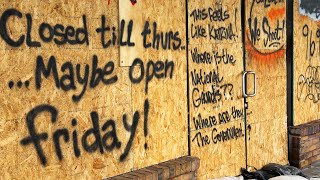 Closed till thurs..
...Maybe Open
friday!
This Feels
Like Katrina!
Where is
the
National
Guard??
Where are they?
The Government
We
Shoot!